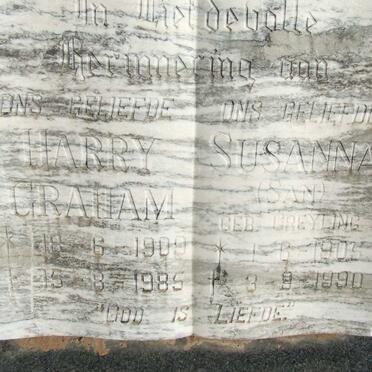 In Liefdevolle
Herinnering aan
ONS GELIEFDE
HARRY
GRAHAM
6 - 1909
8 - 1985
ONS GELIEFDE
SUSANNA
(SAN)
GEB. GREYLING
3 - 9 - 1990
"GOD IS LIEFDE"